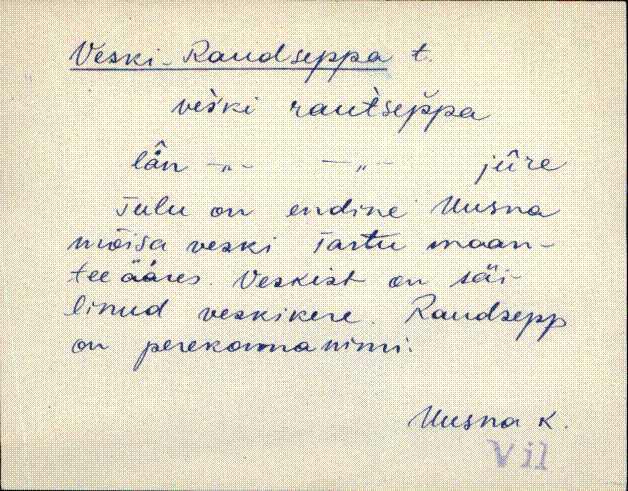 Veski-Raudseppa t.
veśki raut̀sep̆pa
lǟn —„— —„— jûre
Tulu on endine Uusna
mõisa veski Tartu maan-
tee ääres Veskist on säi-
linud veskikere. Raudsepp
on perekonnanimi.
Uusna K.
Vil